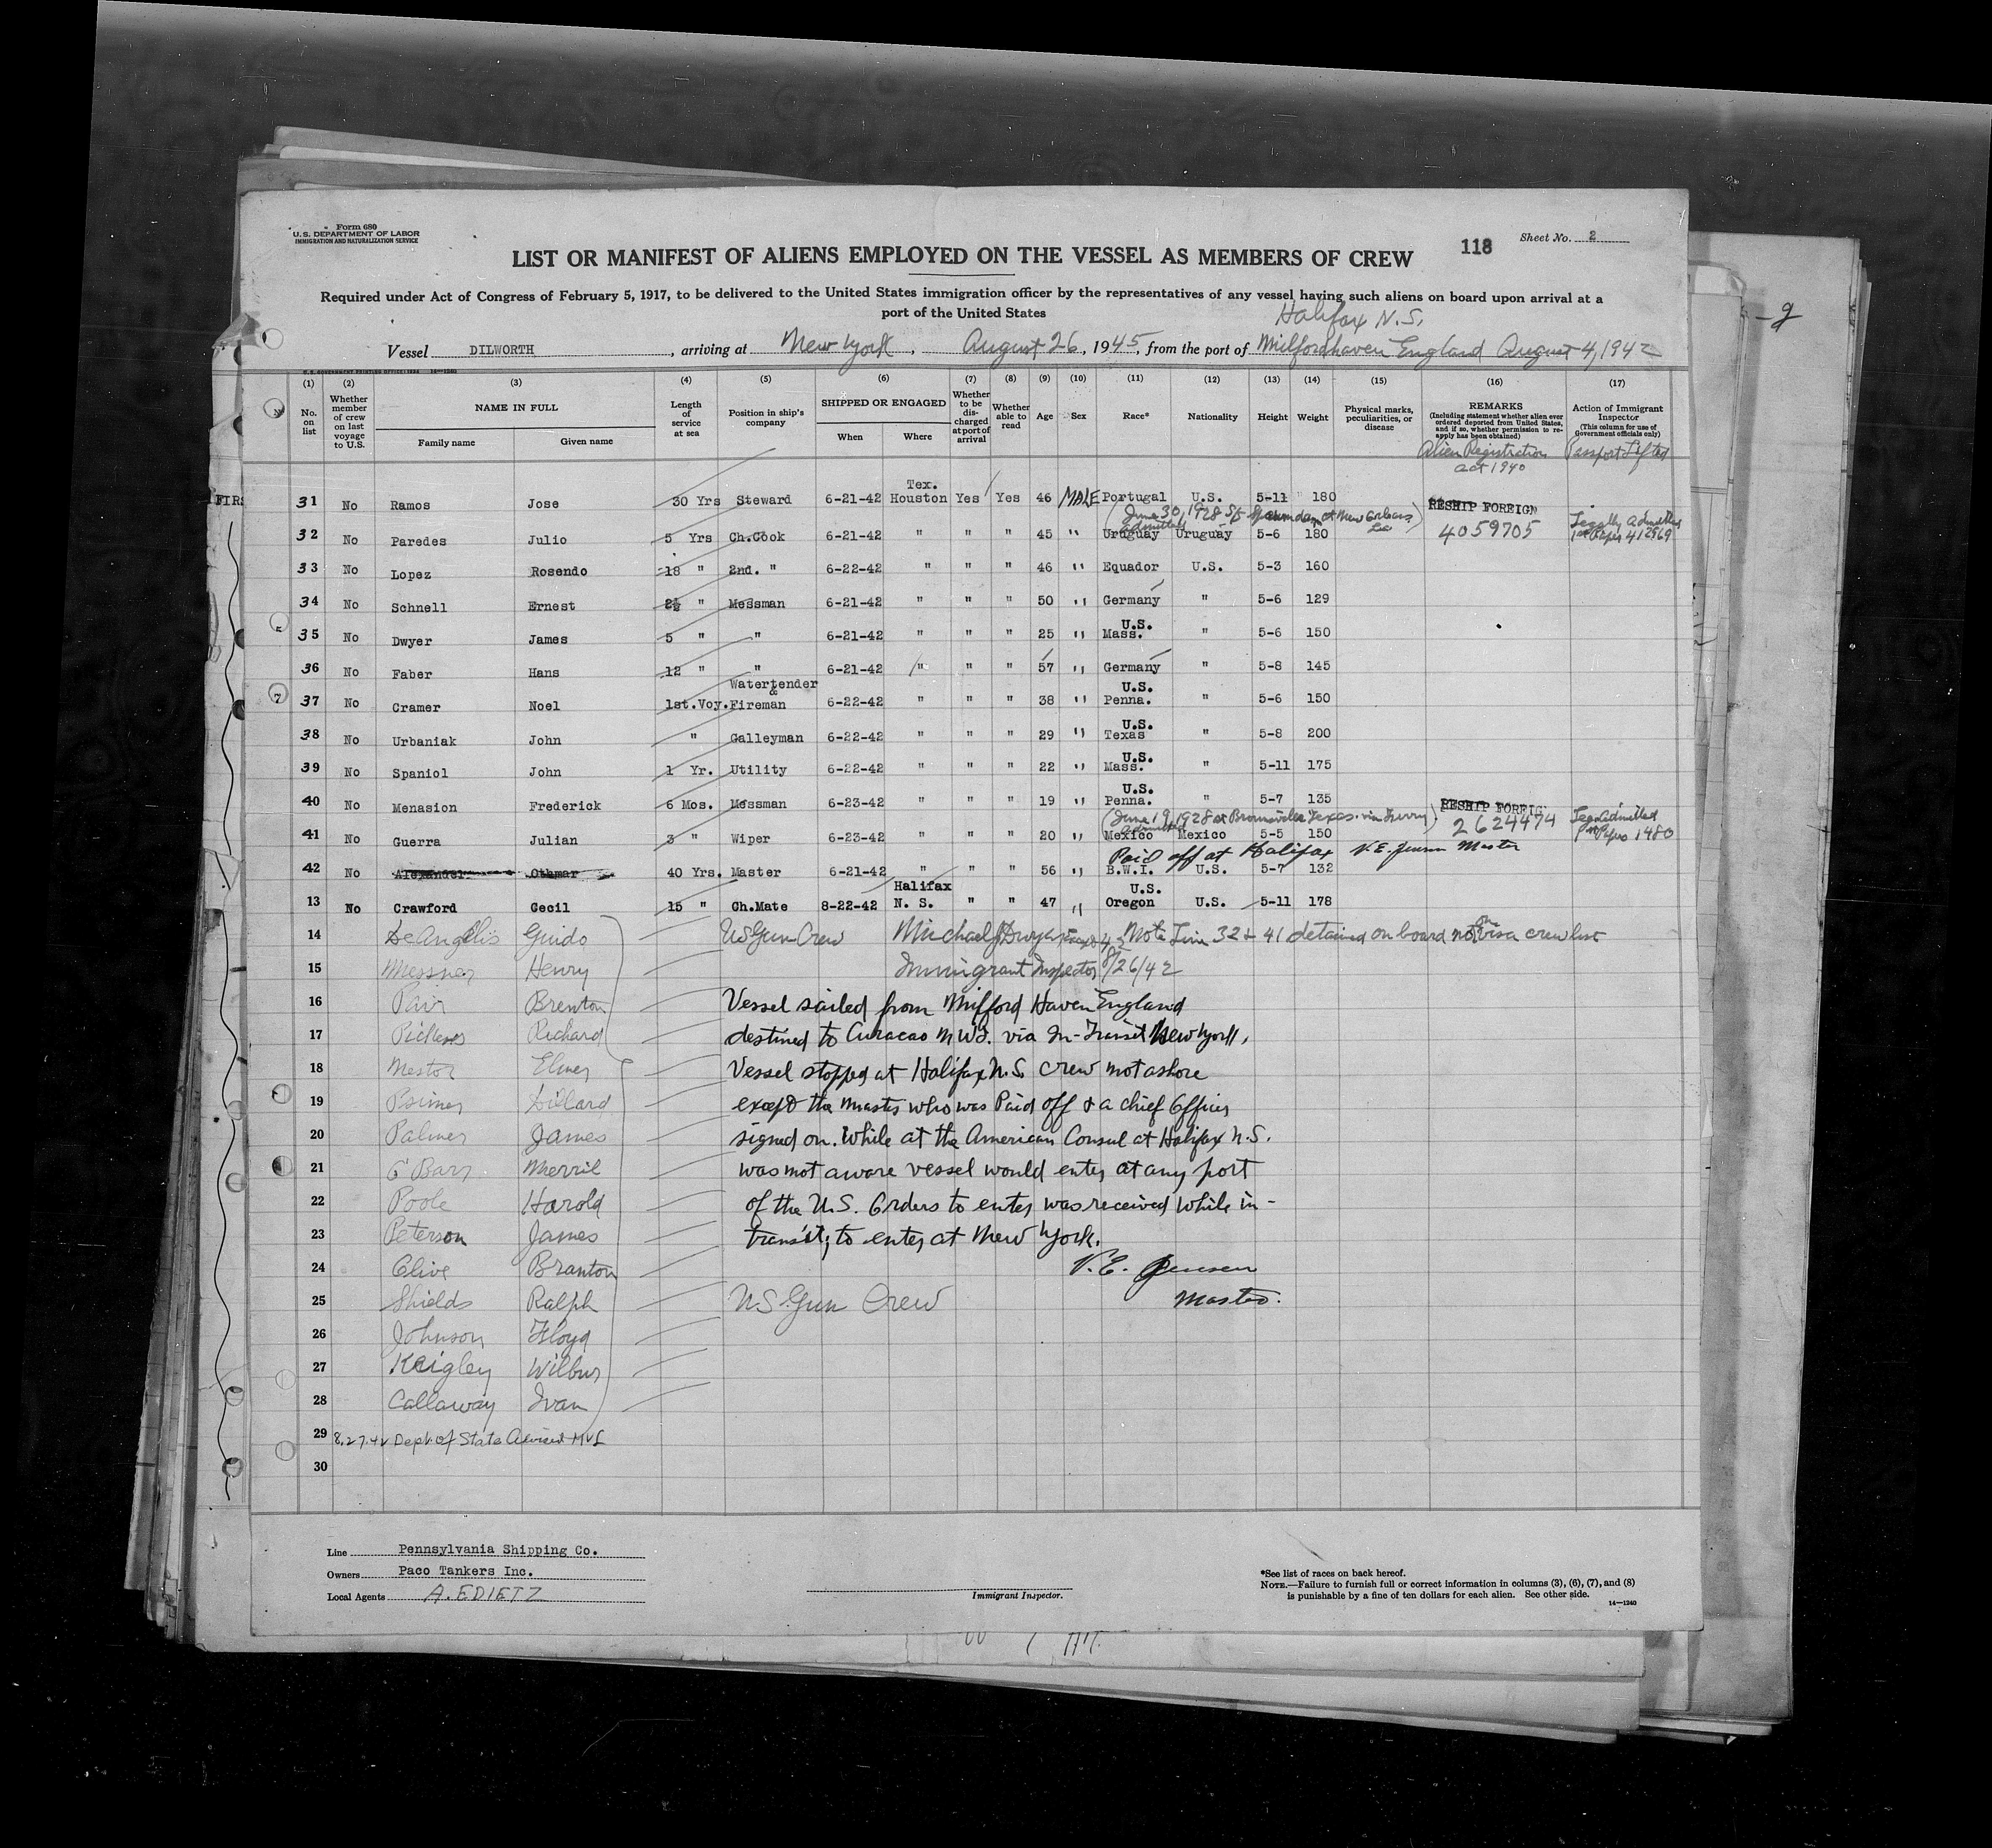 Form 680
U.S. DEPARTMENT OF LABOR
IMMIGRATION AND NATURALIZATION SERVICE
118
Sheet No. 2
LIST OR MANIFEST OF ALIENS EMPLOYED ON THE VESSEL AS MEMBERS OF CREW
Required under Act of Congress of February 5, 1917, to be delivered to the United States immigration officer by the representatives of any vessel having such aliens on board upon arrival at a
port of the United States
Halifax N.S.
Vessel DILWORTH, arriving at New York, August 26, 1945, from the port of Milfordhaven England August 4, 1942
(1) (2) (3) (4) (5) (6) (7) (8) (9) (10) (11) (12) (13) (14) (15) (16) (17)
No. on list
Whether member of crew on last voyage to U.S.
NAME IN FULL
Family name Given name
Length of service at sea
Position in ship's company
SHIPPED OR ENGAGED
When Where
Whether to be discharged at port of arrival
Whether able to read
Age
Sex
Race*
Nationality
Height
Weight
Physical marks, peculiarities, or disease
REMARKS
(Including statement whether alien ever ordered deported from United States, and if so, whether permission to reapply has been obtained)
Alien Registration
act 1940
Action of Immigrant Inspector
(This column for use of Government officials only)
Passport Lifted
FIRS
Tex.
31 No Ramos Jose 30 Yrs Steward 6-21-42 Houston Yes Yes 46 MALE Portugal U.S. 5-11 180 RESHIP FOREIGN
(June 30, 1928 at New Orleans La)
admitted
32 No Paredes Julio 5 Yrs Ch.Cook 6-21-42 " " " 45 " Uruguay Uruguay 5-6 180 4059705 Legally Admitted 412969
33 No Lopez Rosendo 18 " 2nd. " 6-22-42 " " " 46 " Equador U.S. 5-3 160
34 No Schnell Ernest 2½ " Messman 6-21-42 " " " 50 " Germany " 5-6 129
35 No Dwyer James 5 " " 6-21-42 " " " 25 " U.S. Mass. " 5-6 150
36 No Faber Hans 12 " " 6-21-42 " " " 57 " Germany " 5-8 145
37 No Cramer Noel 1st.Voy. Watertender & Fireman 6-22-42 " " " 38 " U.S. Penna. " 5-6 150
38 No Urbaniak John " Galleyman 6-22-42 " " " 29 " U.S. Texas " 5-8 200
39 No Spaniol John 1 Yr. Utility 6-22-42 " " " 22 " U.S. Mass. " 5-11 175
40 No Menasion Frederick 6 Mos. Messman 6-23-42 " " " 19 " U.S. Penna. " 5-7 135 RESHIP FOREIGN
(June 19, 1928 at Brownsville Texas via Ferry)
admitted
41 No Guerra Julian 3 " Wiper 6-23-42 " " " 20 " Mexico Mexico 5-5 150 2624474 Leg Admitted 1480
Paid off at Halifax V.E. Jensen Master
42 No Alexander Othmar 40 Yrs. Master 6-21-42 " " " 56 " B.W.I. U.S. 5-7 132
13 No Crawford Cecil 15 " Ch.Mate 8-22-42 Halifax N. S. " " 47 " U.S. Oregon U.S. 5-11 178
14 DeAngelis Guido US Gun Crew Michael J Dwyer Note Line 32 & 41 detained on board no visa on crew list
15 Messner Henry Immigrant Inspector 8/26/42
16 Pair Brenton Vessel sailed from Milford Haven England
17 Richard destined to Curacao N.W.I. via In-Transit New York,
18 Nestor Elmer Vessel stopped at Halifax N.S. crew not ashore
19 Dillard except the master who was Paid off & a chief Officer
20 Palmer James signed on. While at the American Consul at Halifax N.S.
21 Merril was not aware vessel would enter at any port
22 Poole Harold of the U.S. Orders to enter was received while in-
23 Peterson James transit, to enter at New York.
24 Clive Branton V.E. Jensen
25 Shields Ralph US Gun Crew Master.
26 Johnson Floyd
27 Keigley Wilbur
28 Callaway Ivan
29 8.27.42 Dept of State Advised
30
Line Pennsylvania Shipping Co.
Owners Paco Tankers Inc.
Local Agents A. EDIETZ
Immigrant Inspector.
*See list of races on back hereof.
NOTE.—Failure to furnish full or correct information in columns (3), (6), (7), and (8)
is punishable by a fine of ten dollars for each alien. See other side.
14—1240